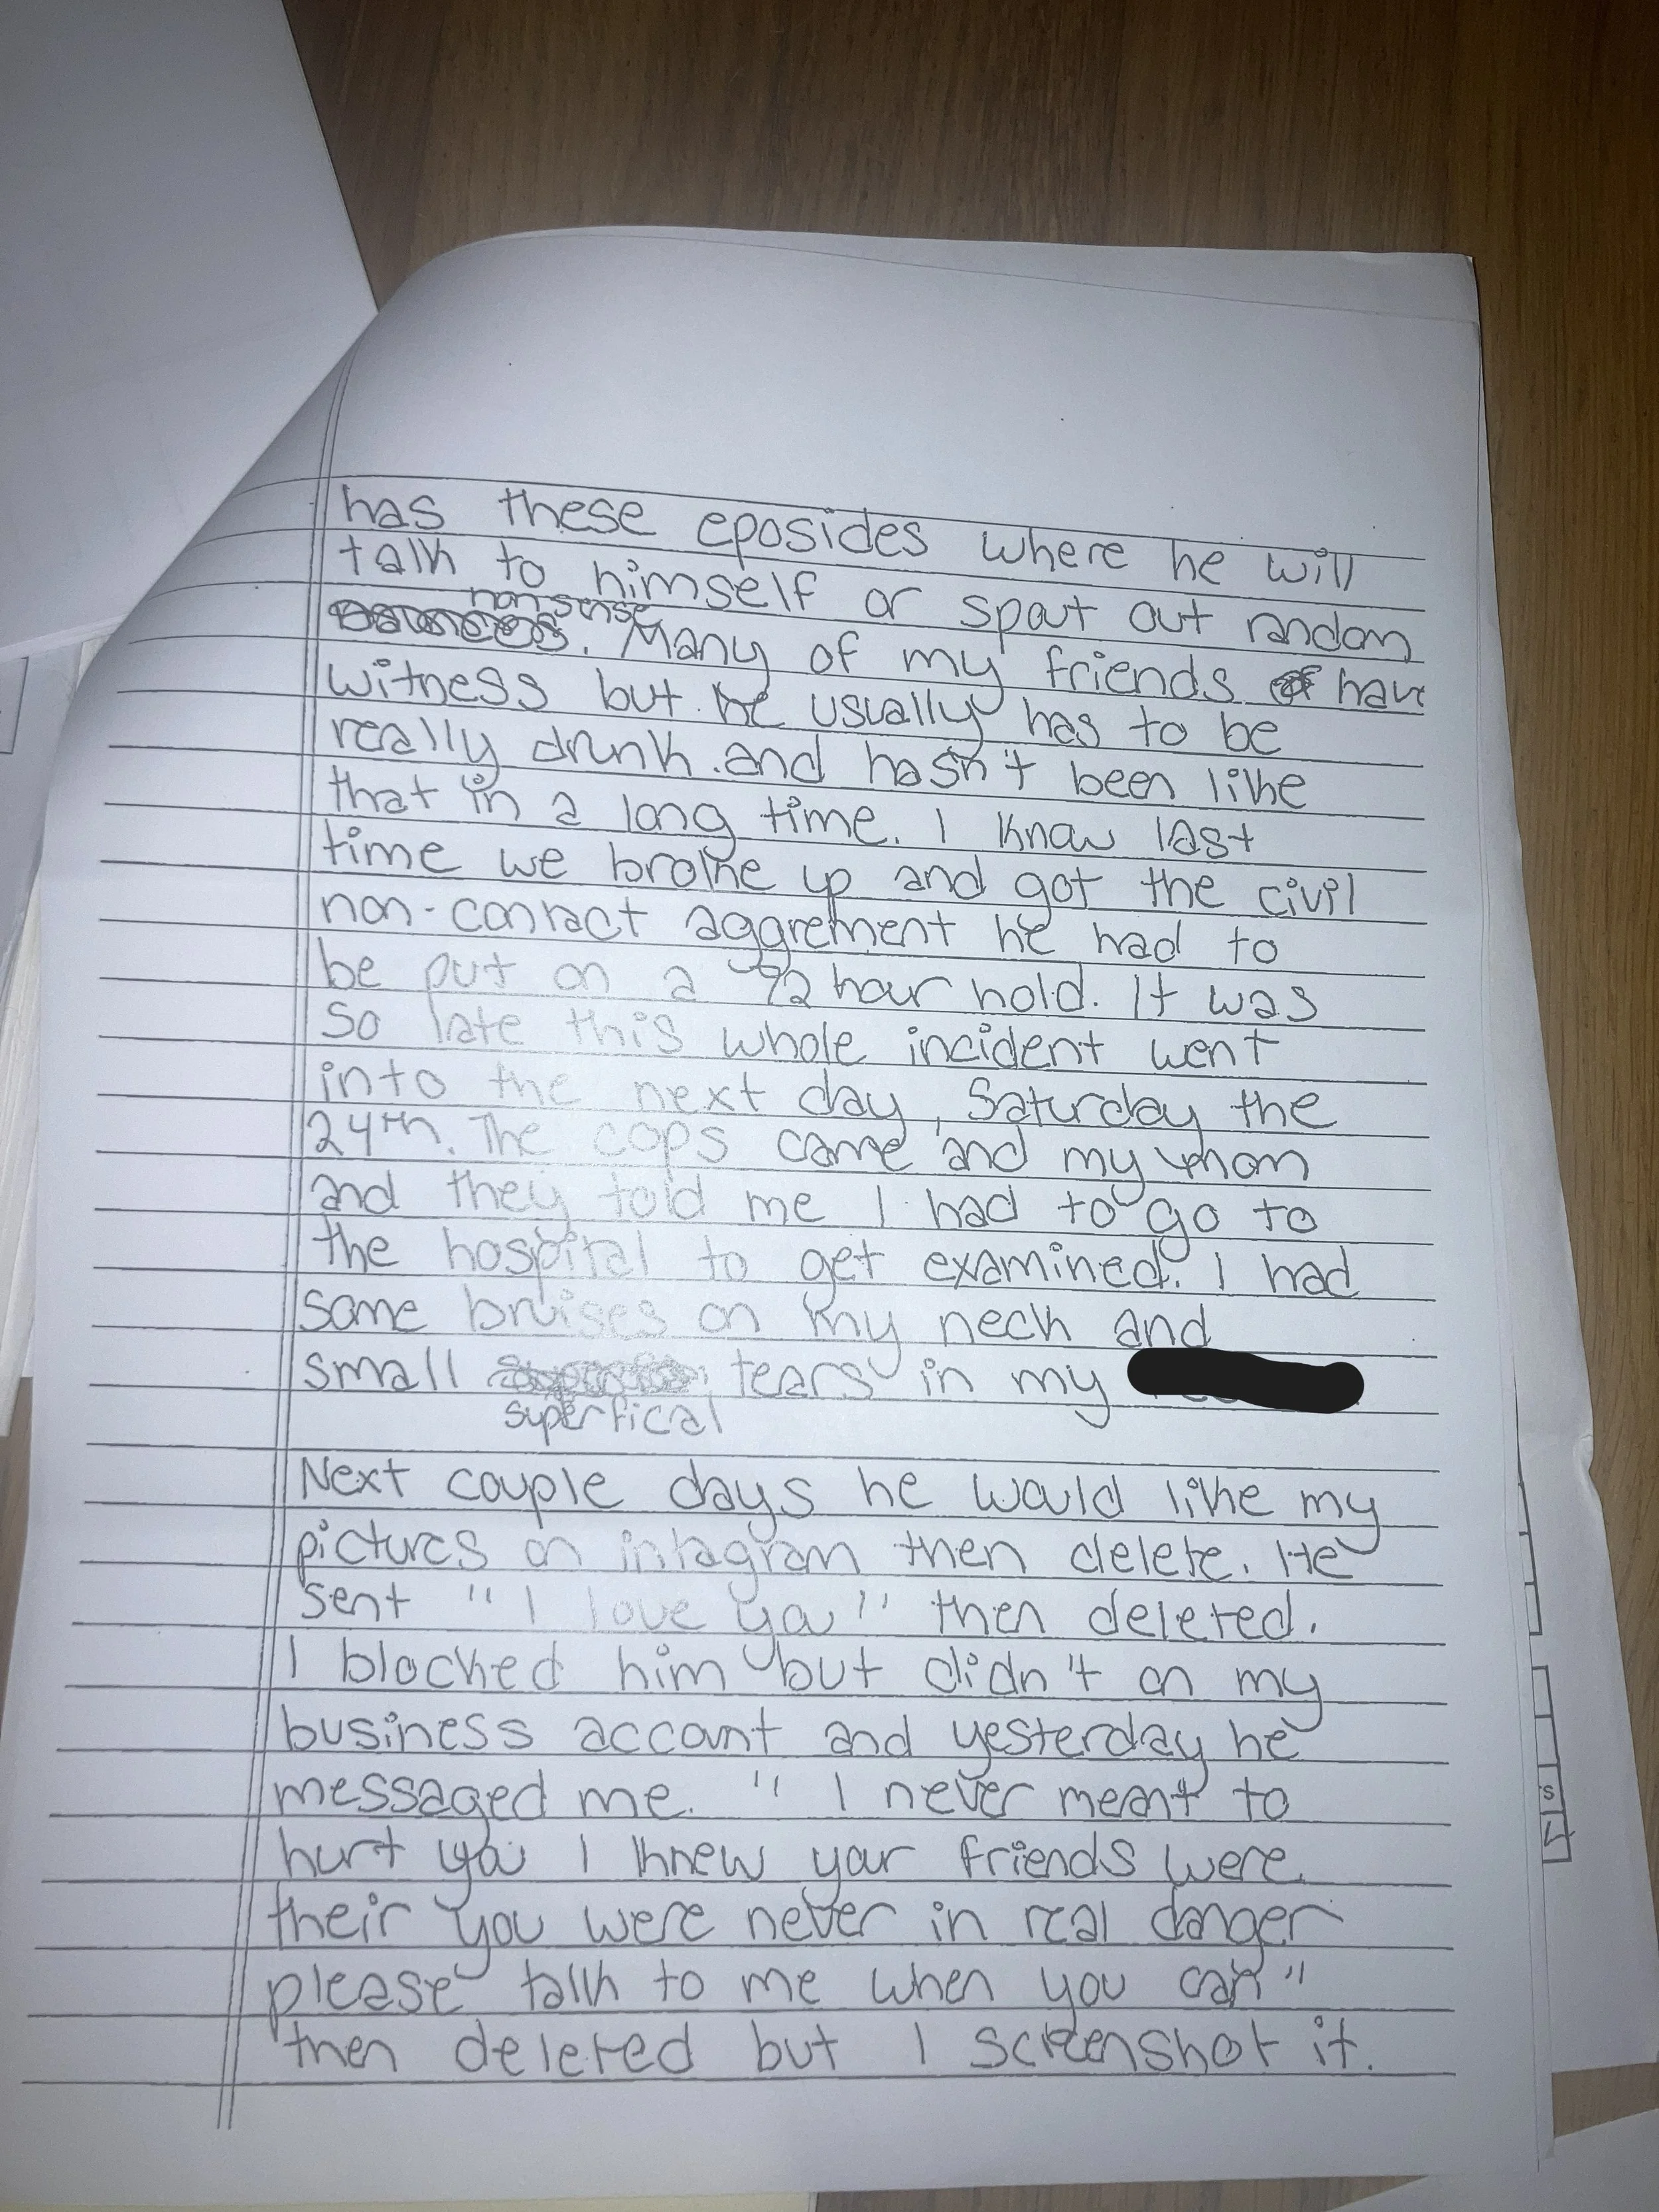 has these eposides where he will
talk to himself or spout out random
nonsense
. Many of my friends have
witness but he usually has to be
really drunk. and hasn't been like
that in a long time. I know last
time we broke up and got the civil
non-contact aggrement he had to
be put on a 72 hour hold. It was
so late this whole incident went
into the next day, Saturday the
24th. The cops came and my mom
and they told me I had to go to
the hospital to get examined. I had
some bruises on my neck and
small tears in my
superfical
Next couple days he would like my
pictures on intagram then delete. He
sent "I love you" then deleted.
I blocked him but didn't on my
business account and yesterday he
messaged me. "I never meant to
hurt you I knew your friends were
their you were never in real danger
please talk to me when you can"
then deleted but I screenshot it.
s